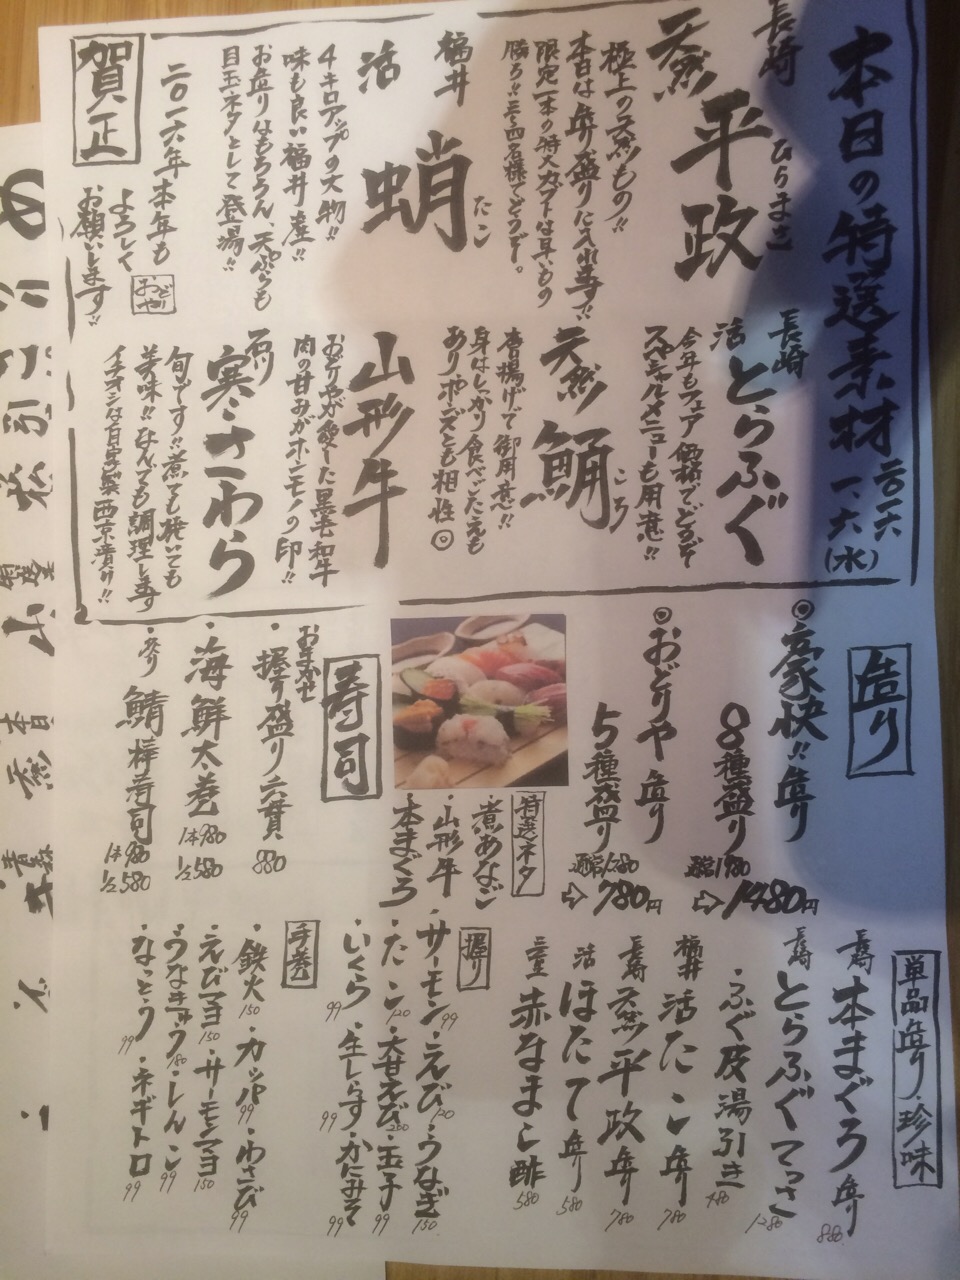 本日の特選素材 二〇一六 一、六(水)
長崎
天然 平政
ひらまさ
極上の天然もの!!
本日は造り盛りに入ります!!
限定一本の特大カブトは早いもの
勝ち!!三、四名様でどうぞ。
福井
活 蛸
たこ
4キロアップの大物!!
味も良い福井産!!
お造りはもちろん、天ぷらも
目玉ネタとして登場!!
賀正
二〇一六年 本年も
よろしく
お願いします!!
おどりや
長崎
活 とらふぐ
今年もフェア価格でどうぞ
スペシャルメニューも用意!!
天然 鯒
こち
唐揚げで御用意!!
身はしっかり食べごたえも
ありポンズとも相性◎
山形牛
おどりやが愛した黒毛和牛
肉の甘みがホンモノの印!!
寒さわら
旬です!!煮ても焼いても
美味!!なんでも調理します
イチオシは自家製西京漬け!!
造り
◎豪快!!造り
8種盛り
通常1980
⇨1480円
◎おどりや造り
5種盛り
通常1280
⇨780円
特選ネタ
・煮あなご
・山形牛
・本まぐろ
寿司
おまかせ
・握り盛り六貫 880
・海鮮太巻 1本980 1/2 580
・炙り 鯖棒寿司 1本980 1/2 580
単品造り・珍味
長崎 本まぐろ造り 880
長崎 とらふぐてっさ 1280
・ふぐ皮湯引き 480
福井 活たこ造り 780
長崎 天然平政造り 780
活 ほたて造り 580
三重 赤なまこ酢 580
握り
・サーモン 99 ・えび 120 ・うなぎ 150
・たこ 120 ・大甘えび 200 ・玉子 99
・いくら 99 ・生しらす 99 ・かにみそ 99
手巻
・鉄火 150 ・カッパ 99 ・わさび 99
・えびマヨ 150 ・サーモンマヨ 150
・うなきゅう 180 ・しんこ 99
・なっとう 99 ・ネギトロ 99